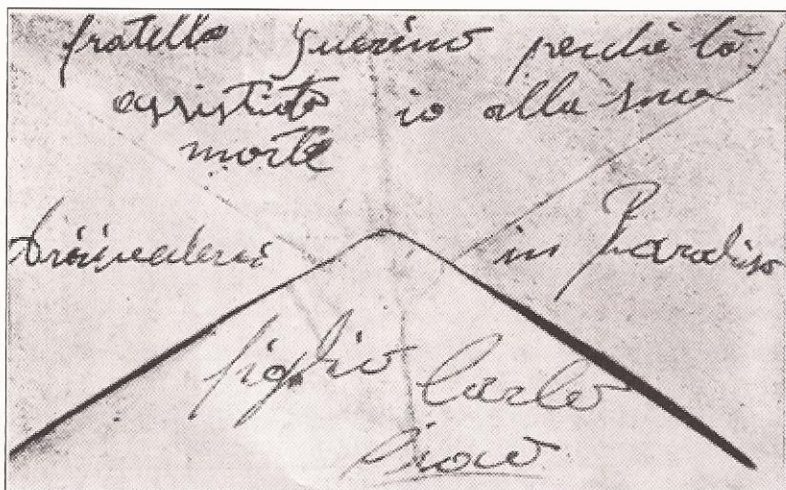 fratello Guerino perchè lò
assistito io alla sua
morte
Arrivederci in Paradiso
figlio Carlo